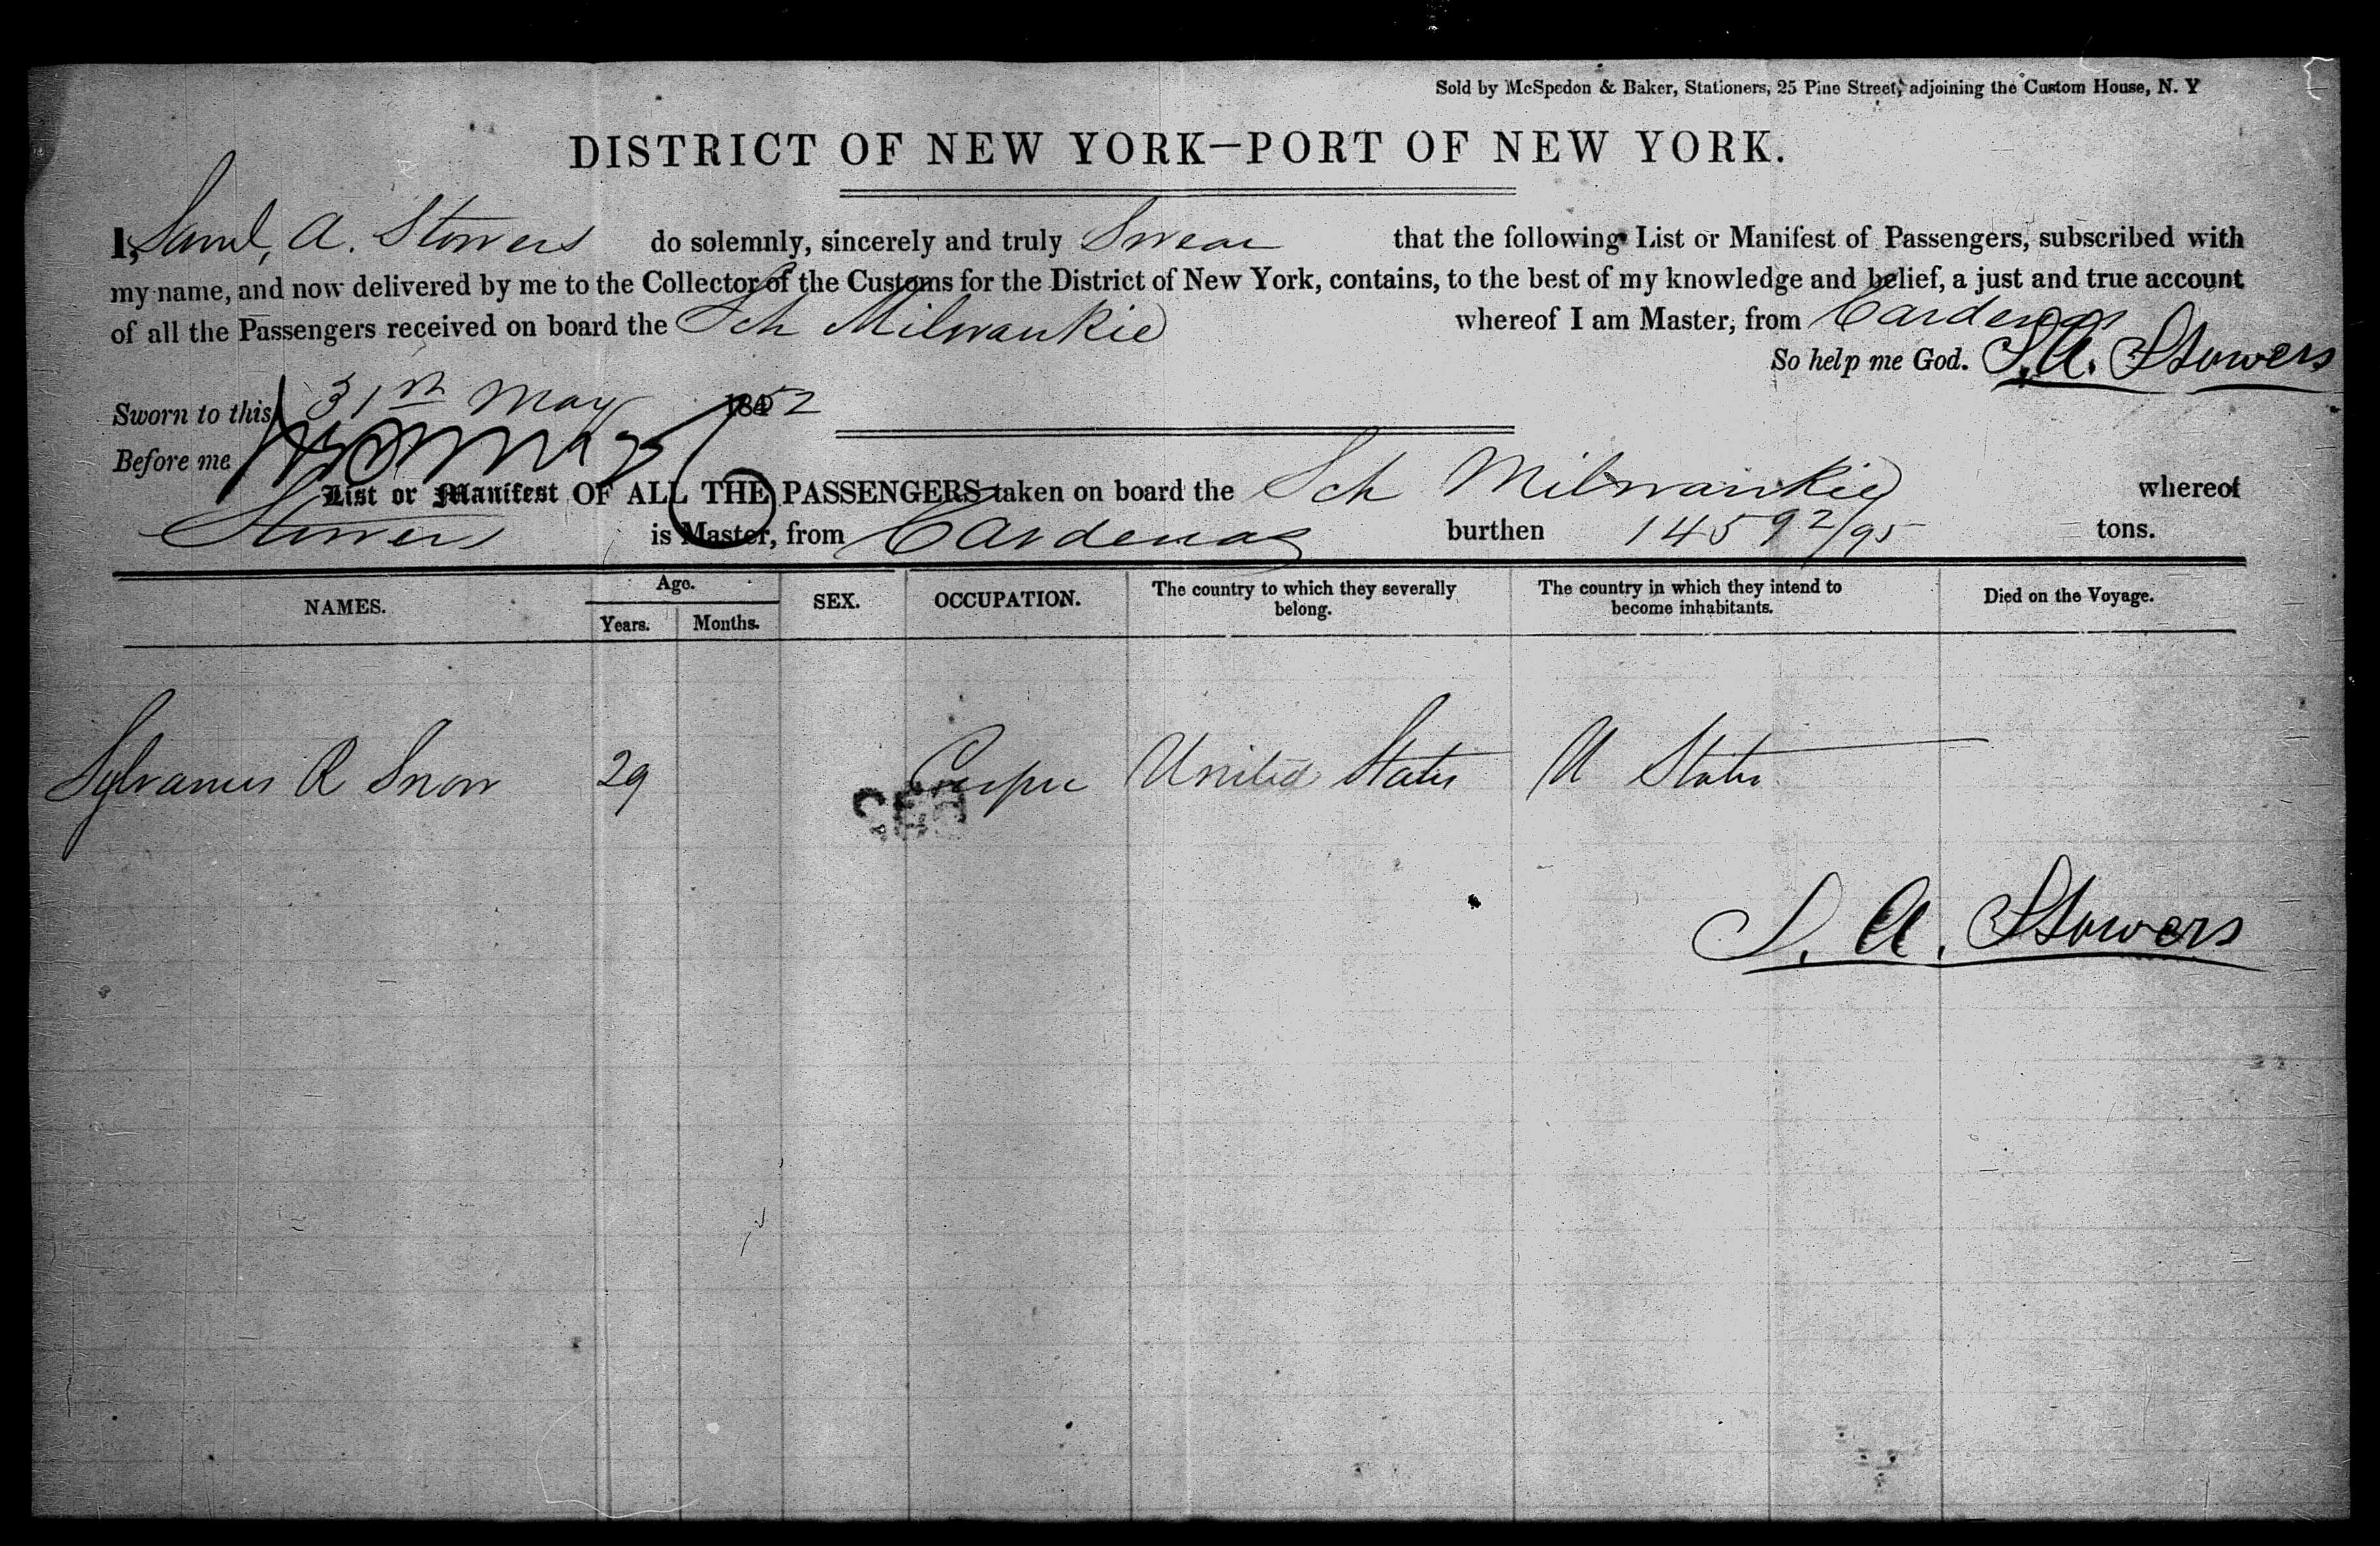 Sold by McSpedon & Baker, Stationers, 25 Pine Street, adjoining the Custom House, N. Y
DISTRICT OF NEW YORK—PORT OF NEW YORK.
I, Saml, A. Stowers do solemnly, sincerely and truly Swear that the following List or Manifest of Passengers, subscribed with
my name, and now delivered by me to the Collector of the Customs for the District of New York, contains, to the best of my knowledge and belief, a just and true account
of all the Passengers received on board the Sch Milwaukie whereof I am Master, from Cardenas
So help me God. S. A. Stowers
Sworn to this 31st May 1852
Before me
List or Manifest OF ALL THE PASSENGERS taken on board the Sch Milwaukie whereof
Stowers is Master, from Cardenas burthen 145 92/95 tons.
NAMES. Age. Years. Months. SEX. OCCUPATION. The country to which they severally belong. The country in which they intend to become inhabitants. Died on the Voyage.
Sylvanus R Snow 29 United States U States
S. A. Stowers